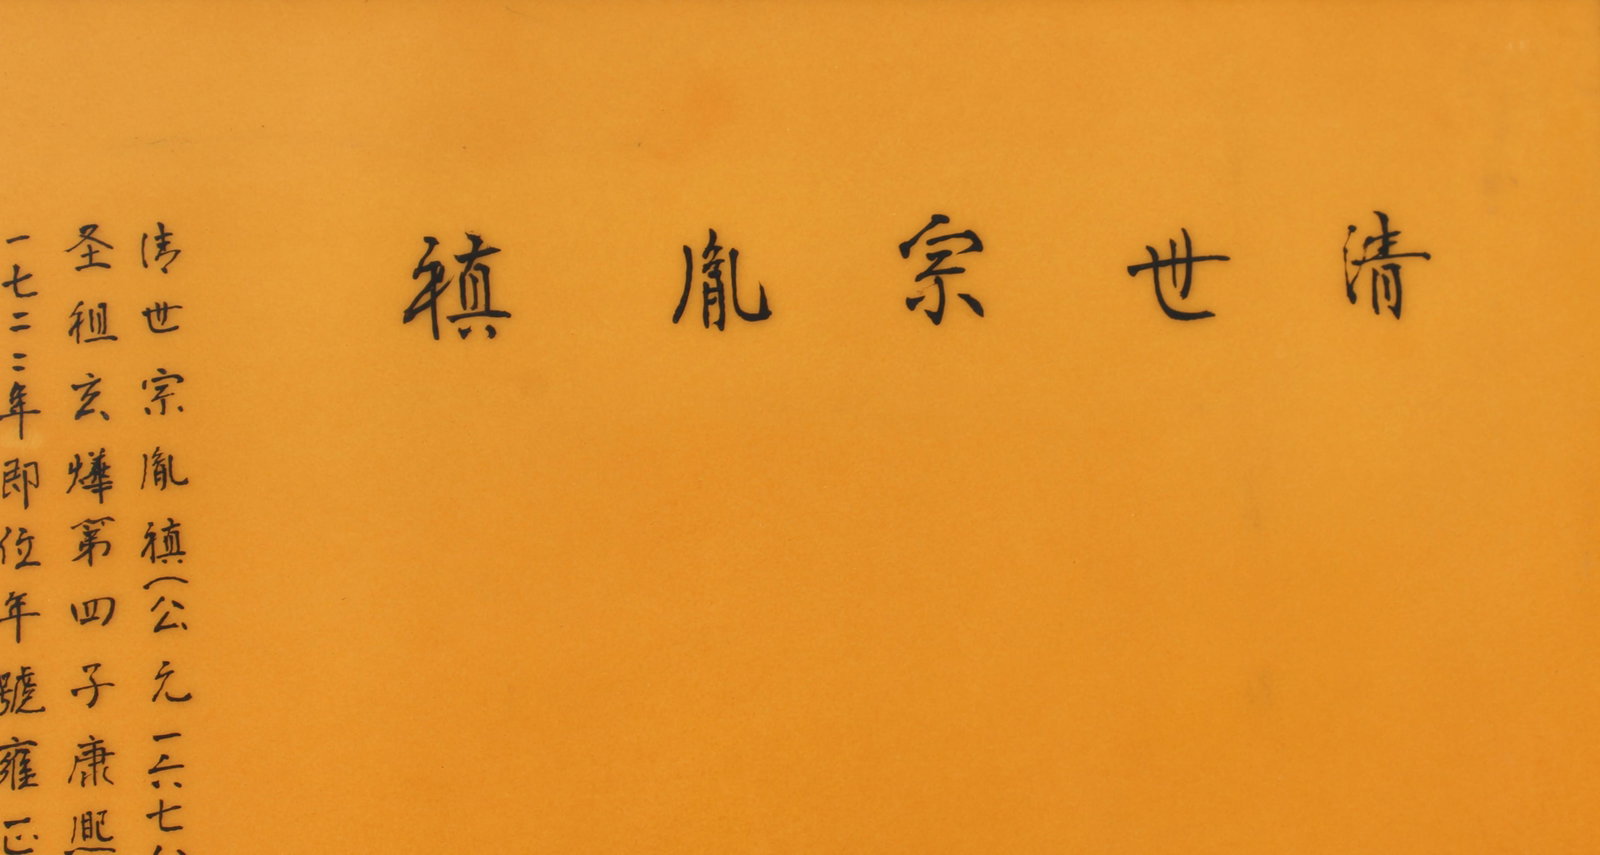 清世宗胤禛
清世宗胤禛(公元一六七八
圣祖玄燁第四子康熙
一七二二年即位年號雍正